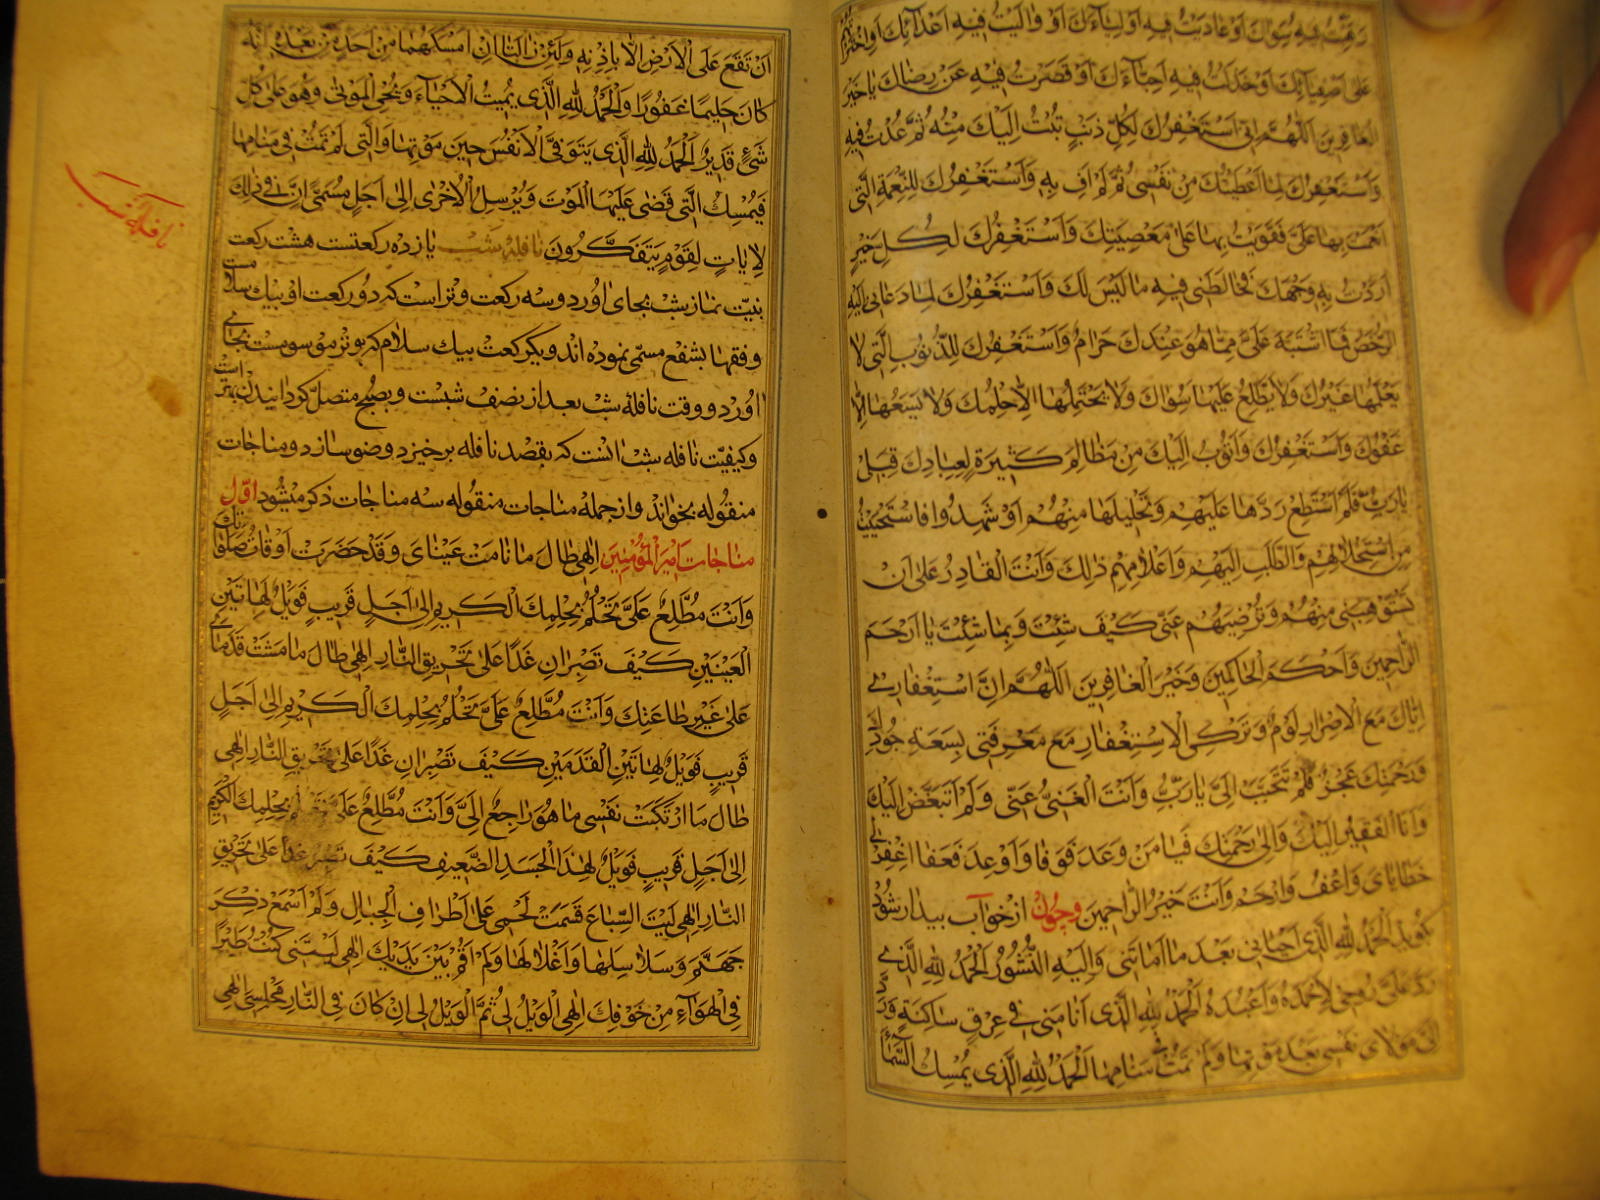 رهبت فيه سواك او عاديت فيه اولياءك او واليت فيه اعدائك او اخترتهم
على اصفيائك او خذلت فيه احباءك او قصرت فيه عن رضاك يا خير
الغافرين اللهم اني استغفرك لكل ذنب تبت اليك منه ثم عدت فيه
واستغفرك لما اعطيتك من نفسي ثم لم اف به واستغفرك للنعمة التي
انعمت بها علي فقويت بها على معصيتك واستغفرك لكل خير
اردت به وجهك فخالطني فيه ما ليس لك واستغفرك لما دعاني اليه
الرخص فيما اشتبه علي مما هو عندك حرام واستغفرك للذنوب التي لا
يعلمها غيرك ولا يطلع عليها سواك ولا يحتملها الا حلمك ولا يسعها الا
عفوك واستغفرك واتوب اليك من مظالم كثيرة لعبادك قبلي
يا رب فلم استطع ردها عليهم وتحليلها منهم او شهدوا فاستحييت
من استحلالهم والطلب اليهم واعلامهم ذلك وانت القادر على ان
تستوهبني منهم وترضيهم عني كيف شئت وبما شئت يا ارحم
الراحمين واحكم الحاكمين وخير الغافرين اللهم ان استغفاري
اياك مع الاصرار لؤم وتركي الاستغفار مع معرفتي بسعة جودك
ورحمتك عجز فلم تتحبب الي يا رب وانت الغني عني ولم اتبغض اليك
وانا الفقير اليك والى رحمتك فيا من وعد فوفا واوعد فعفا اغفر لي
خطاياي واعف وارحم وانت خير الراحمين و چون از خواب بيدار شود
بگويد الحمد لله الذي احياني بعد ما اماتني واليه النشور الحمد لله الذي
رد علي روحي لاحمده واعبده الحمد لله الذي انامني في عرق ساكنة ورد
الى مولاي نفسي بعد موتها ولم تمت في منامها الحمد لله الذي يمسك السماء
ان تقع على الارض الا باذنه ولئن زالتا ان امسكهما من احد من بعده انه
كان حليما غفورا والحمد لله الذي يميت الاحياء ويحي الموتى وهو على كل
شيء قدير الحمد لله الذي يتوفى الانفس حين موتها والتي لم تمت في منامها
فيمسك التي قضى عليها الموت ويرسل الاخرى الى اجل مسمى ان في ذلك
لايات لقوم يتفكرون نافلهٔ شب يازده ركعتست هشت ركعت
بنيت نماز شب بجاى اورد و سه ركعت وتر است كه دو ركعت او بيك سلامت
و فقها بشفع مسمى نموده اند و يكركعت بيك سلام كه بوتر موسومست بجاى
اورد و وقت نافلهٔ شب بعد از نصف شبست و بصبح متصل گردانيدن بهتر است
و كيفيت نافله شب انست كه بقصد نافله برخيزد و وضو سازد و مناجات
منقوله بخواند و از جملهٔ مناجات منقوله سه مناجات ذكر ميشود اول
مناجات امير المؤمنين الهي طال ما نامت عيناي وقد حضرت اوقات صلواتك
وانت مطلع علي تحلم بحلمك الكريم الى اجل قريب فويل لهاتين
العينين كيف تصبران غدا على تحريق النار الهي طال ما مشت قدماي
على غير طاعتك وانت مطلع علي تحلم بحلمك الكريم الى اجل
قريب فويل لهاتين القدمين كيف تصبران غدا على تحريق النار الهي
طال ما ارتكبت نفسي ما هو راجع الي وانت مطلع علي تحلم بحلمك الكريم
الى اجل قريب فويل لهذا الجسد الضعيف كيف تصبر غدا على تحريق
النار الهي ليت السباع قسمت لحمي على اطراف الجبال ولم اسمع ذكر
جهنم وسلاسلها واغلالها ولم اقم بين يديك الهي ليتني كنت طيرا
في الهواء من خوفك الهي الويل لي ثم الويل لي ان كان في النار مجلسي الهي
نافلهٔ شب